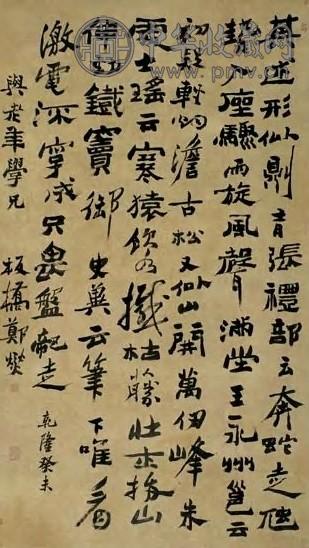 其述形似則有張禮部云奔蛇走虺
勢入座驟雨旋風聲滿堂王永州邕云
初疑輕烟澹古松又似山開萬仞峰朱
處士瑤云寒猿飲水撼枯藤壯士拔山
伸勁鐵竇御史冀云筆下唯看
激電流字成只畏盤龍走
與老年學兄 板橋鄭燮
乾隆癸未
中华收藏网